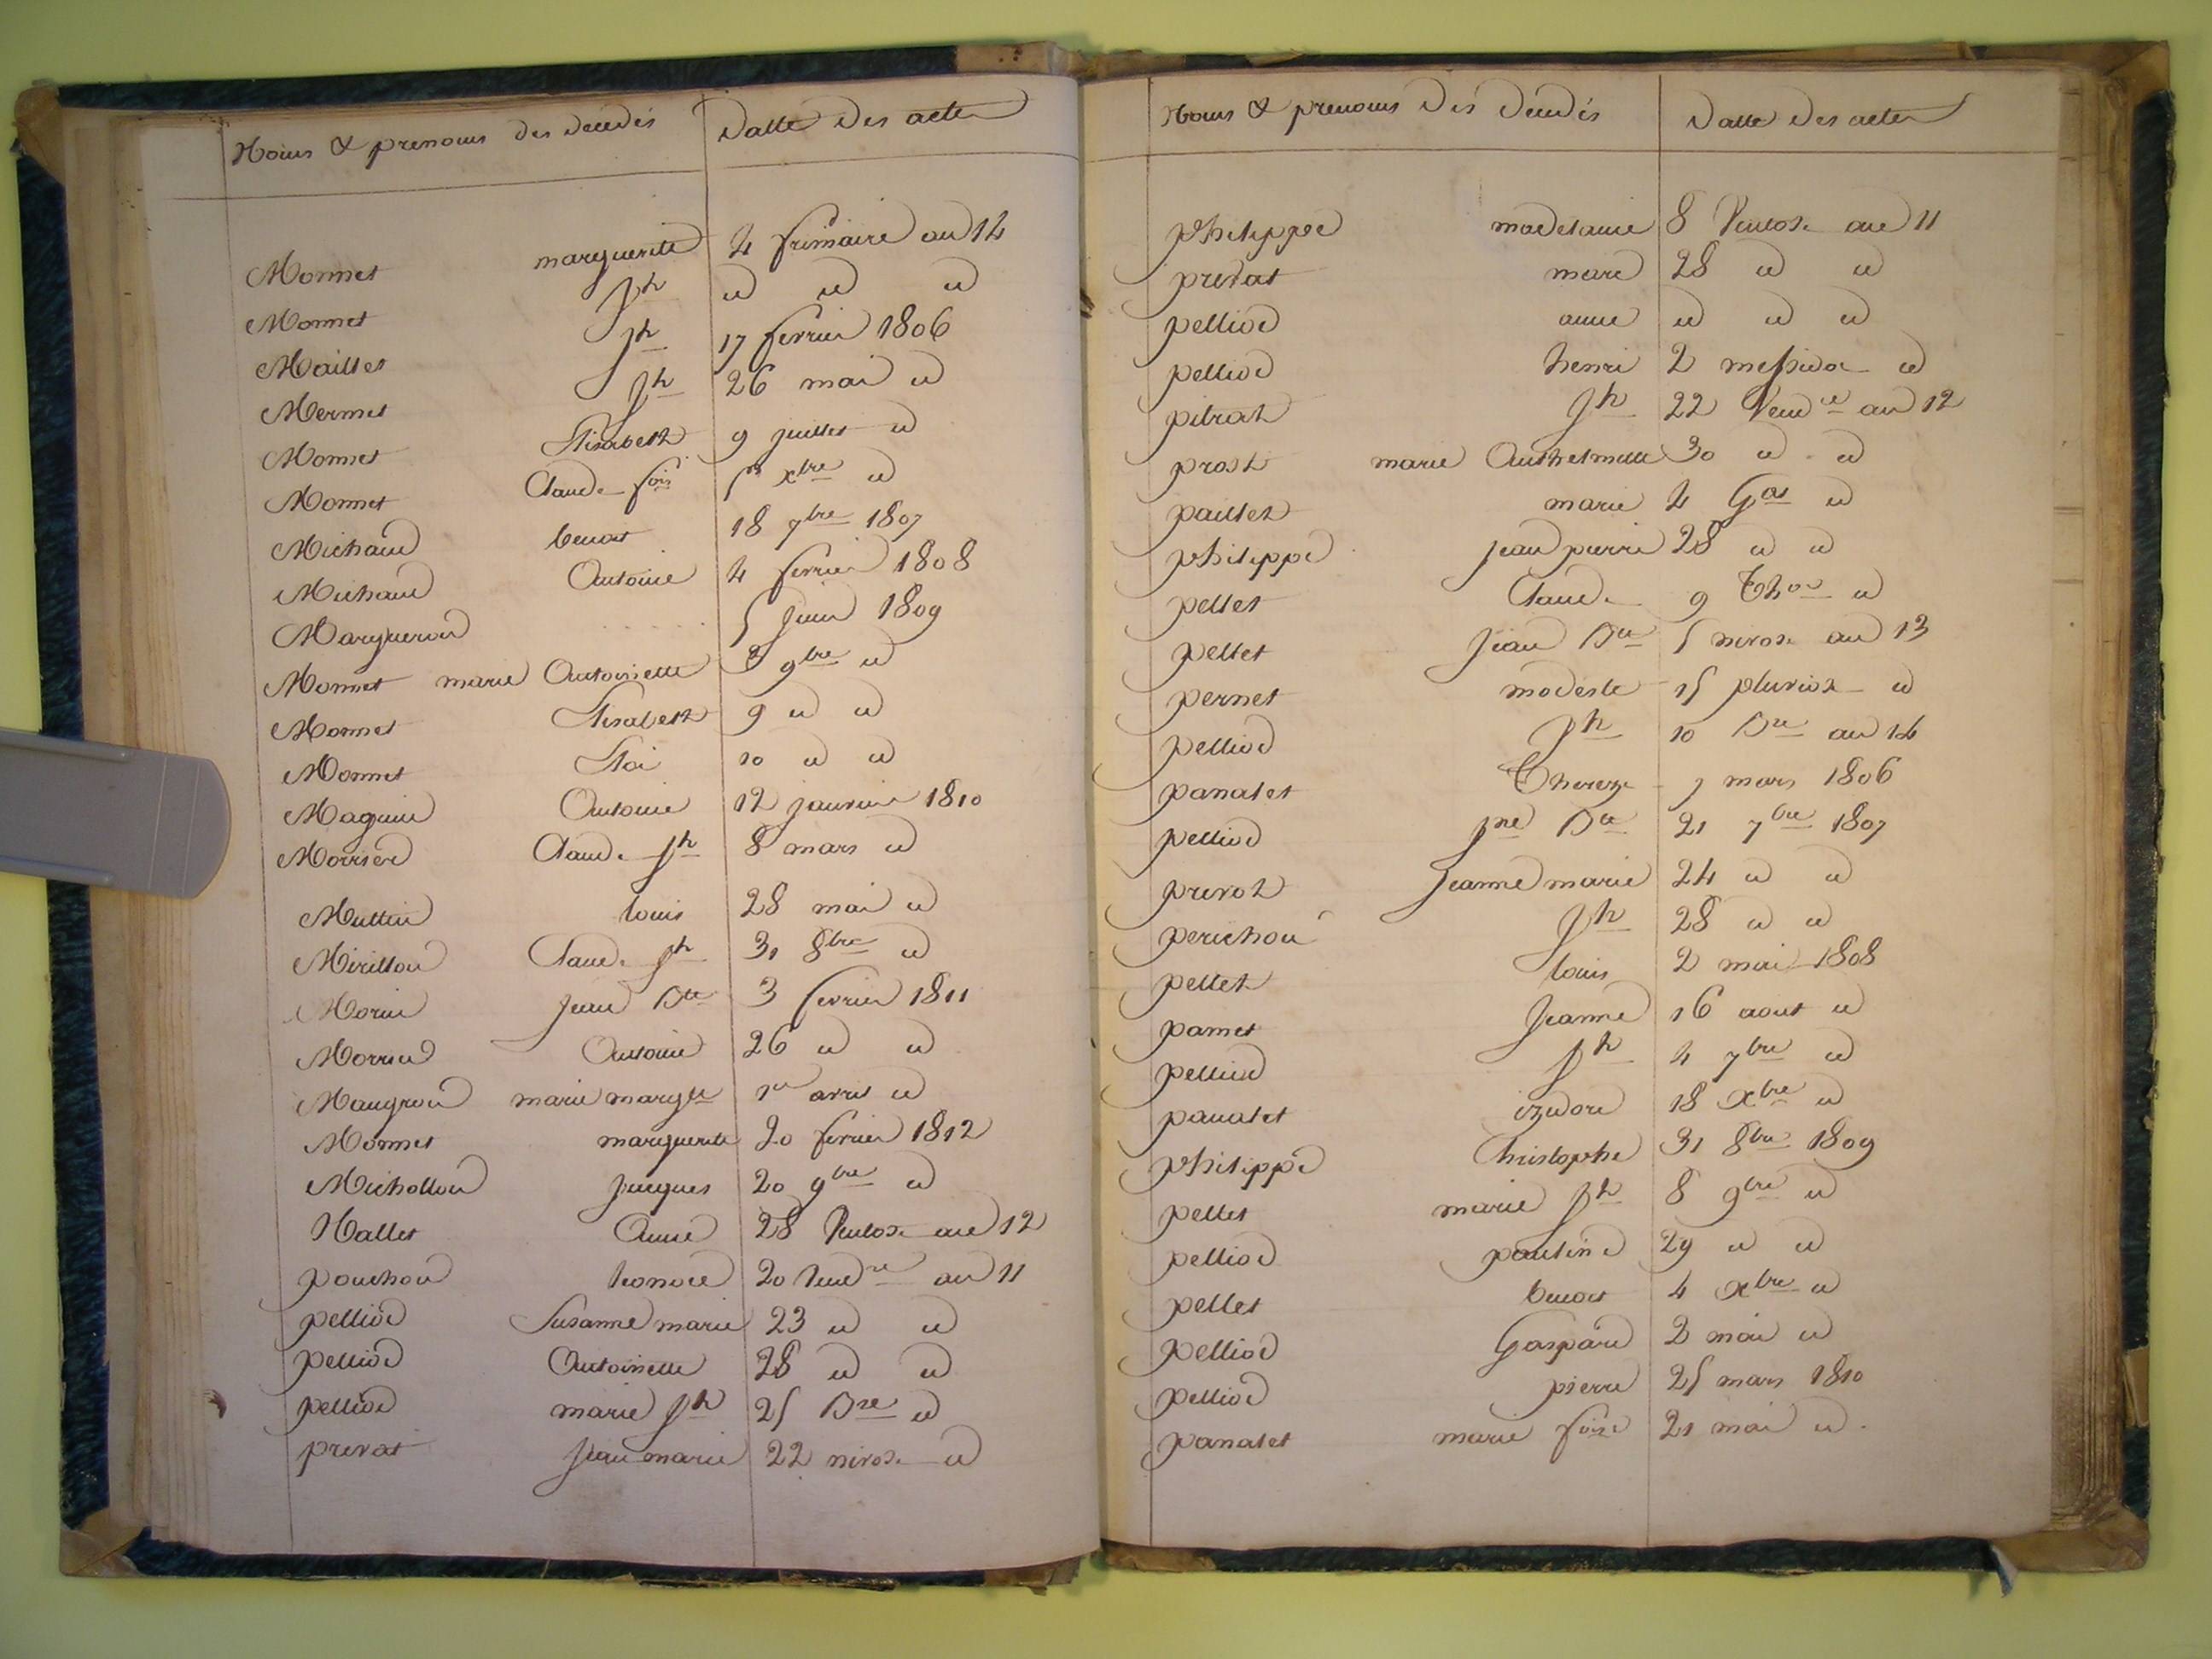 Noms & prenoms des décédés Datte des actes
Monnet marguerite 4 frimaire an 14
Monnet Jh id id id
Maillet Jh 17 fevrier 1806
Mermet Jh 26 mai id
Monnet Elisabeth 9 juillet id
Monnet Claude fois 5 xbre id
Michaud benoit 18 7bre 1807
Michaud Antoine 4 fevrier 1808
Margueron 5 Juin 1809
Monnet marie Antoinette 8 9bre id
Monnet Elisabeth 9 id id
Monnet Eloi 10 id id
Maguin Antoine 12 janvier 1810
Morrier Claude Jh 8 mars id
Muttin louis 28 mai id
Mirillon Claude Jh 31 8bre id
Morin Jean Bte 3 fevrier 1811
Morrier Antoine 26 id id
Maugron marie margte 1er avril id
Monnet marguerite 20 fevrier 1812
Michollon Jacques 20 9bre id
Nallet Anne 28 Ventose an 12
pouchon honoré 20 Vendre an 11
pelliod Susanne marie 23 id id
pelliod Antoinette 28 id id
pelliod marie Jh 25 Bre id
privat Jean marie 22 nivose id
Noms & prenoms des décédés Datte des actes
philippe madelaine 8 Ventose an 11
privat marie 28 id id
pelliod anne id id id
pelliod henri 2 messidor id
pitrat Jh 22 Vendre an 12
prost marie Anthelmette 30 id id
paillet marie 4 Gal id
philippe jean pierre 28 id id
pellet Claude 9 Thor id
pellet Jean Bte 5 nivose an 13
pernet modeste 15 pluviose id
pelliod Jh 10 Bre an 14
panalet Thereze 7 mars 1806
pelliod jne Bte 21 7bre 1807
prevot Jeanne marie 24 id id
perichon Jh 28 id id
pellet louis 2 mai 1808
pamet Jeanne 16 aout id
pelliod Jh 4 7bre id
panalet izidore 18 Xbre id
philippe Christophe 31 8bre 1809
pellet marie Jh 8 9bre id
pelliod pauline 29 id id
pellet benoit 4 Xbre id
pelliod Gaspard 2 mai id
pelliod pierre 25 mars 1810
panalet marie foise 21 mai id